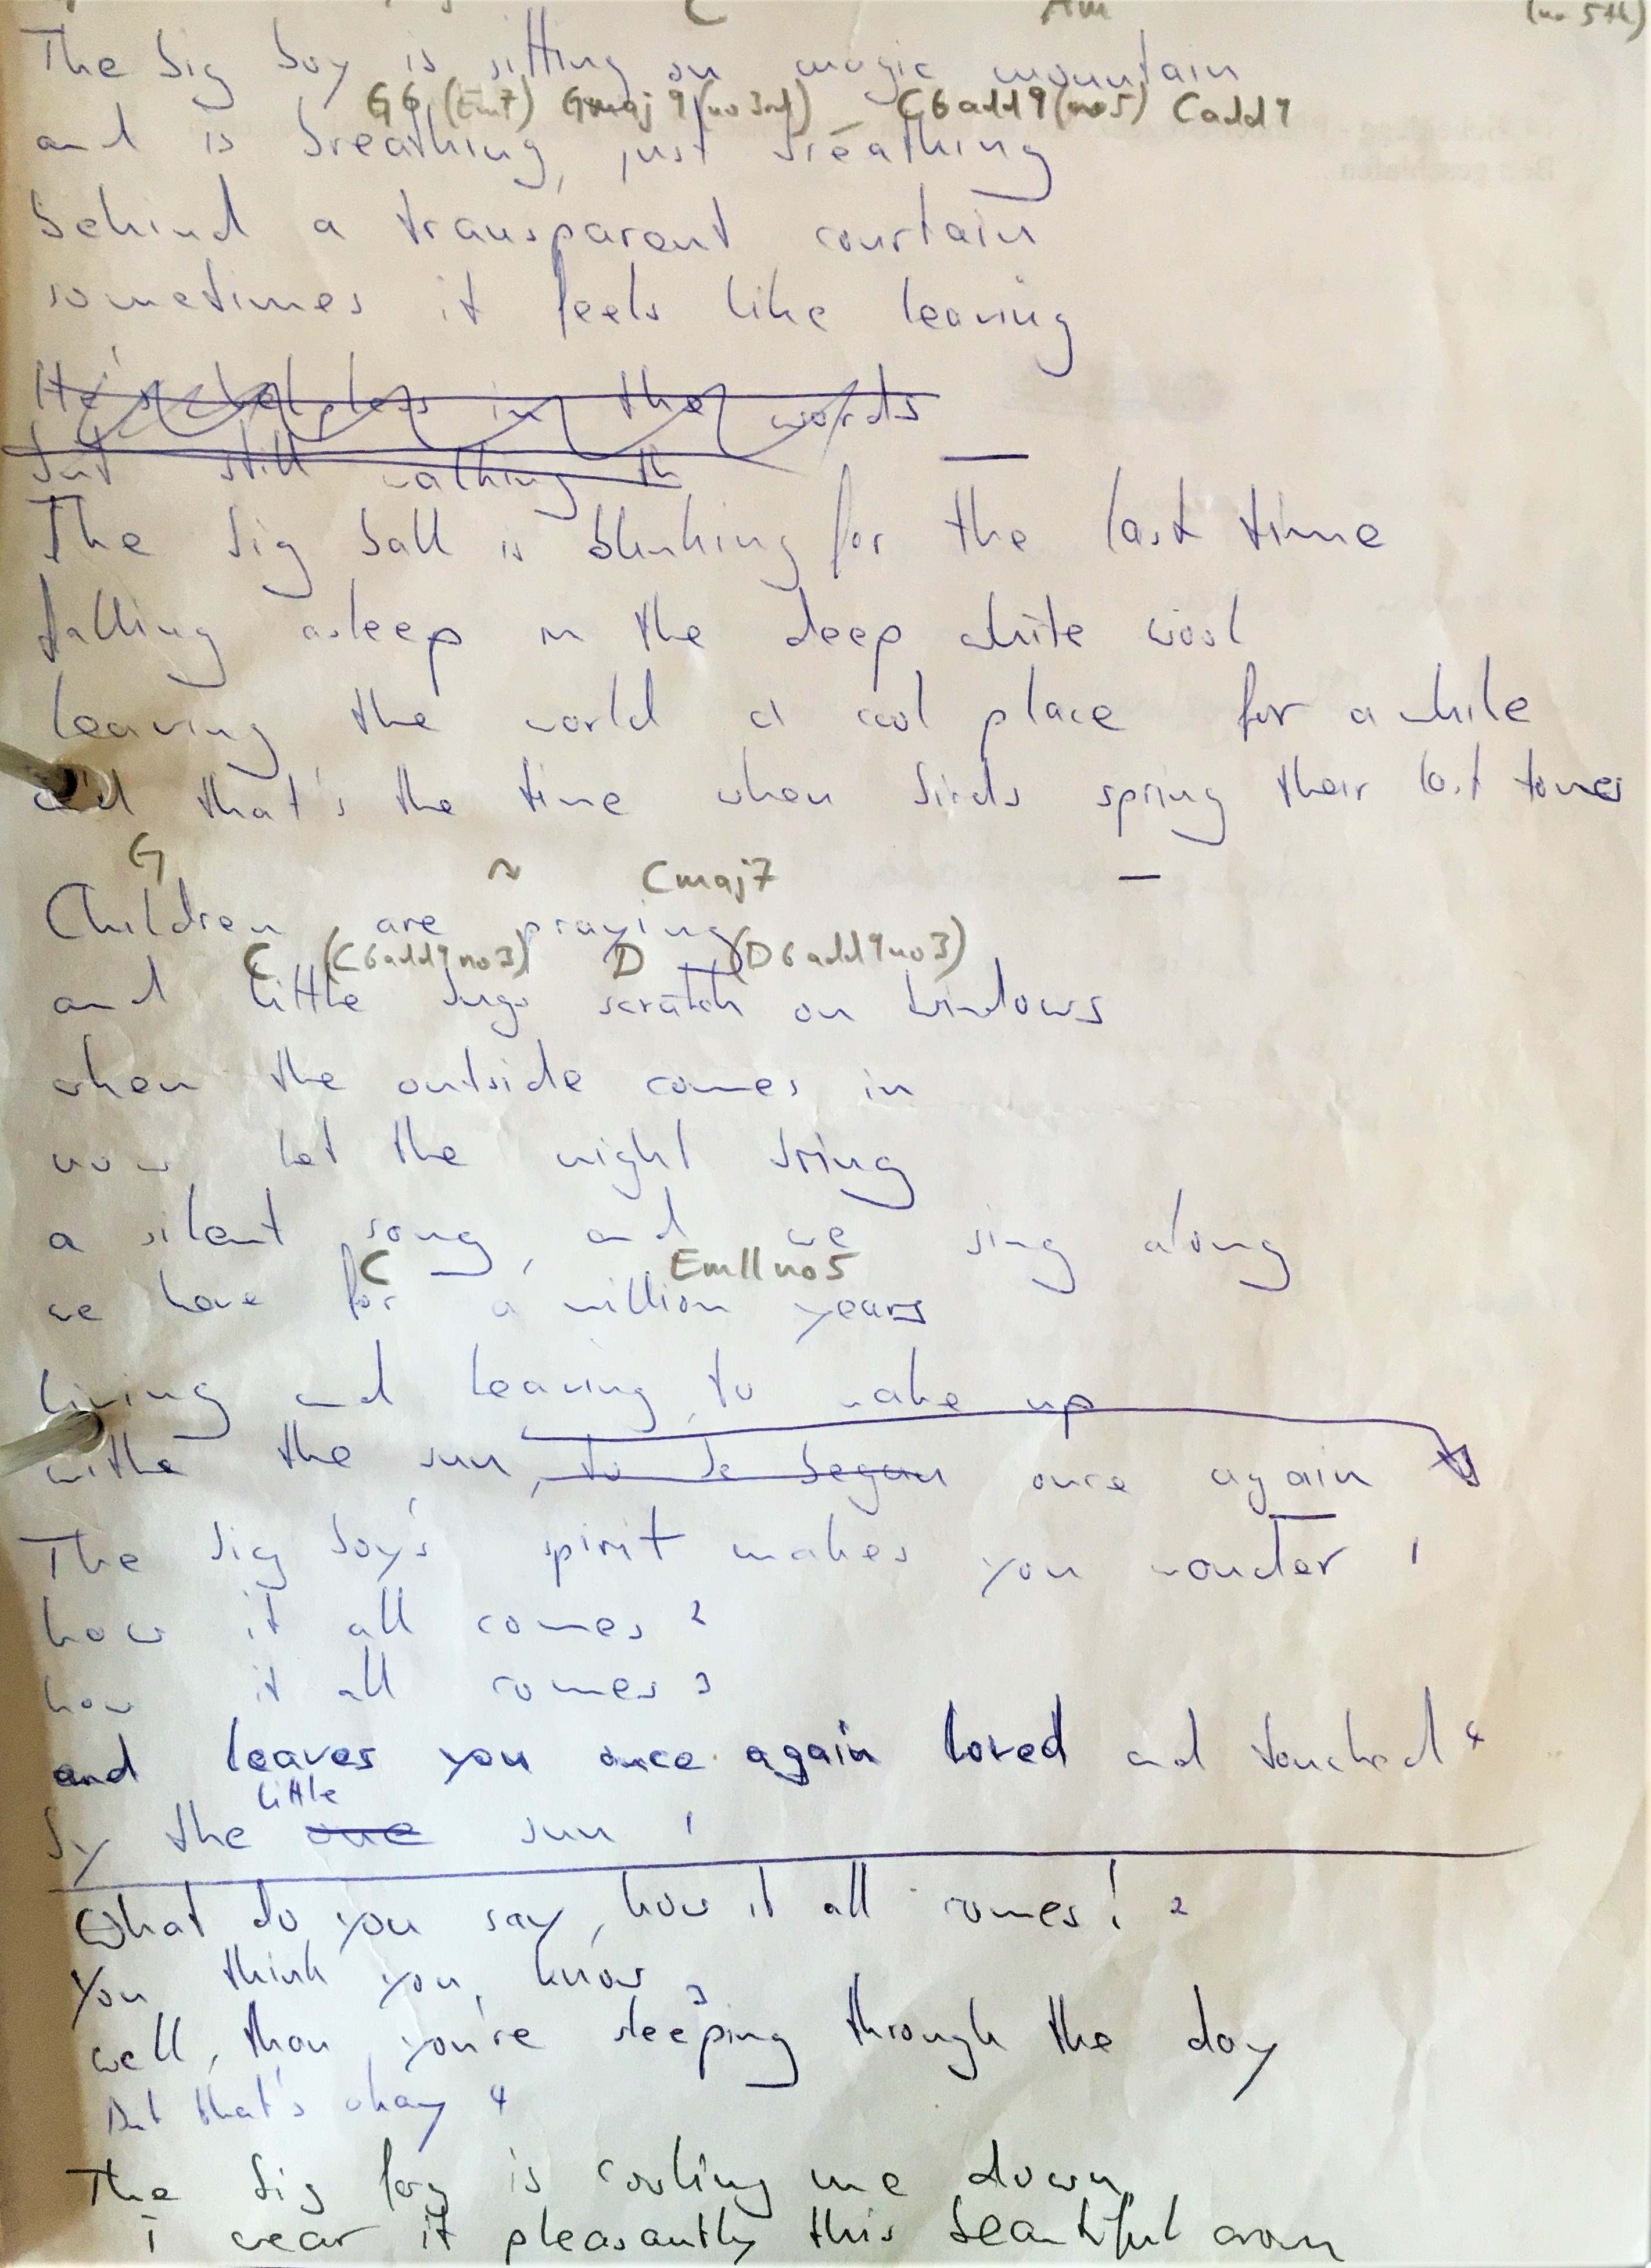 C Am (no 5th)
The big boy is sitting on magic mountain
G6 (Em7) Gmaj9 (no3rd) C6add9(no5) Cadd9
and is breathing, just breathing
behind a transparent courtain
sometimes it feels like leaving
He's helpless in the words
but still walking th
The big ball is blinking for the last time
falling asleep in the deep white wool
leaving the world a cool place for a while
and that's the time when birds spring their last tones
G ~ Cmaj7
Children are praying
C (C6add9no3) D (D6add9no3)
and little bugs scratch on windows
when the outside comes in
now let the night bring
a silent song, and we sing along
C Em11no5
we have for a million years
living and leaving, to wake up
withe the sun, to be began once again
The big boy's spirit makes you wonder 1
how it all comes 2
how it all comes 3
and leaves you once again loved and touched 4
little
by the one sun 1
What do you say, how it all comes! 2
You think you know 3
well, than you're sleeping through the day
But that's okay 4
The big fog is cooling me down
I wear it pleasantly this beautiful